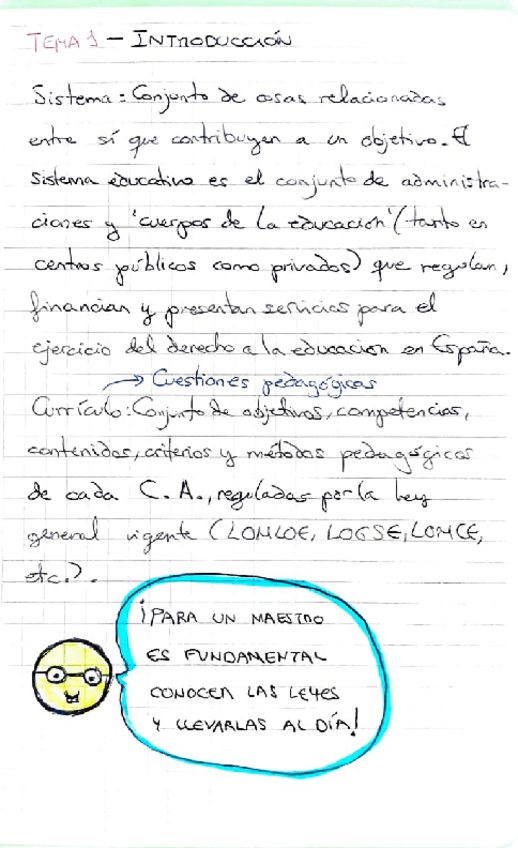 TEMA 1 - INTRODUCCIÓN
Sistema: Conjunto de cosas relacionadas
entre sí que contribuyen a un objetivo. El
sistema educativo es el conjunto de administra-
ciones y 'cuerpos de la educación' (tanto en
centros públicos como privados) que regulan,
financian y presentan servicios para el
ejercicio del derecho a la educación en España.
→ Cuestiones pedagógicas
Currículo: Conjunto de objetivos, competencias,
contenidos, criterios y métodos pedagógicos
de cada C.A., reguladas por la ley
general vigente (LOMLOE, LOGSE, LOMCE,
etc.).
¡PARA UN MAESTRO
ES FUNDAMENTAL
CONOCER LAS LEYES
Y LLEVARLAS AL DÍA!